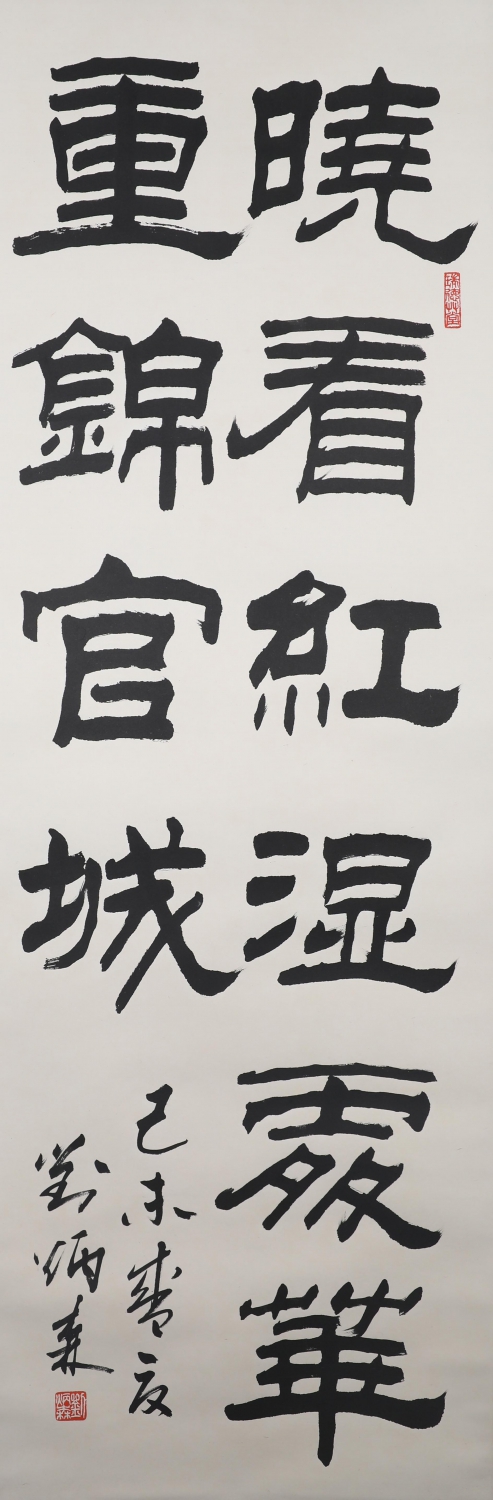 曉看紅湿處華
重錦官城
己未春
劉炳森
劉炳森